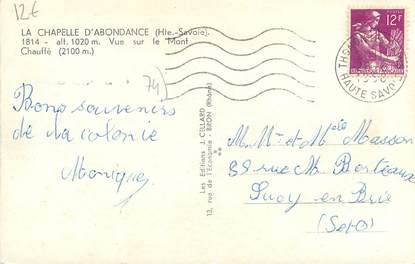 12€
LA CHAPELLE D'ABONDANCE (Hte-Savoie).
1814 - alt. 1020 m. Vue sur le Mont
Chauffé (2100 m.)
74
Bons souvenirs
de la colonie
Monique
Les Editions J. CELLARD
13, rue de l'Economie - BRON (Rhône)
12F
HAUTE SAVOIE
M. Mr et Melle Masson
39 rue M. Berteaux
Sucy en Brie
(S et O)